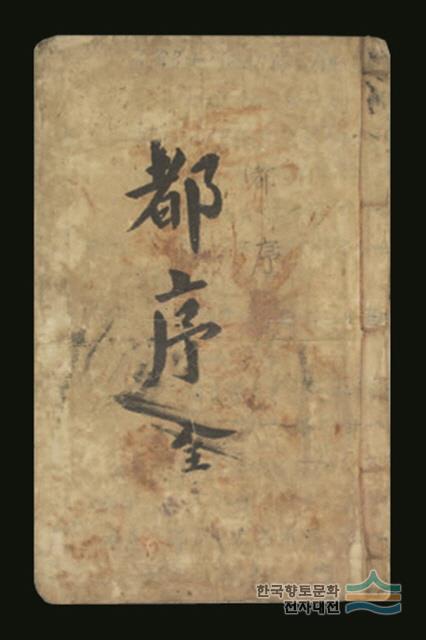 都序全
都序
한국향토문화
전자대전